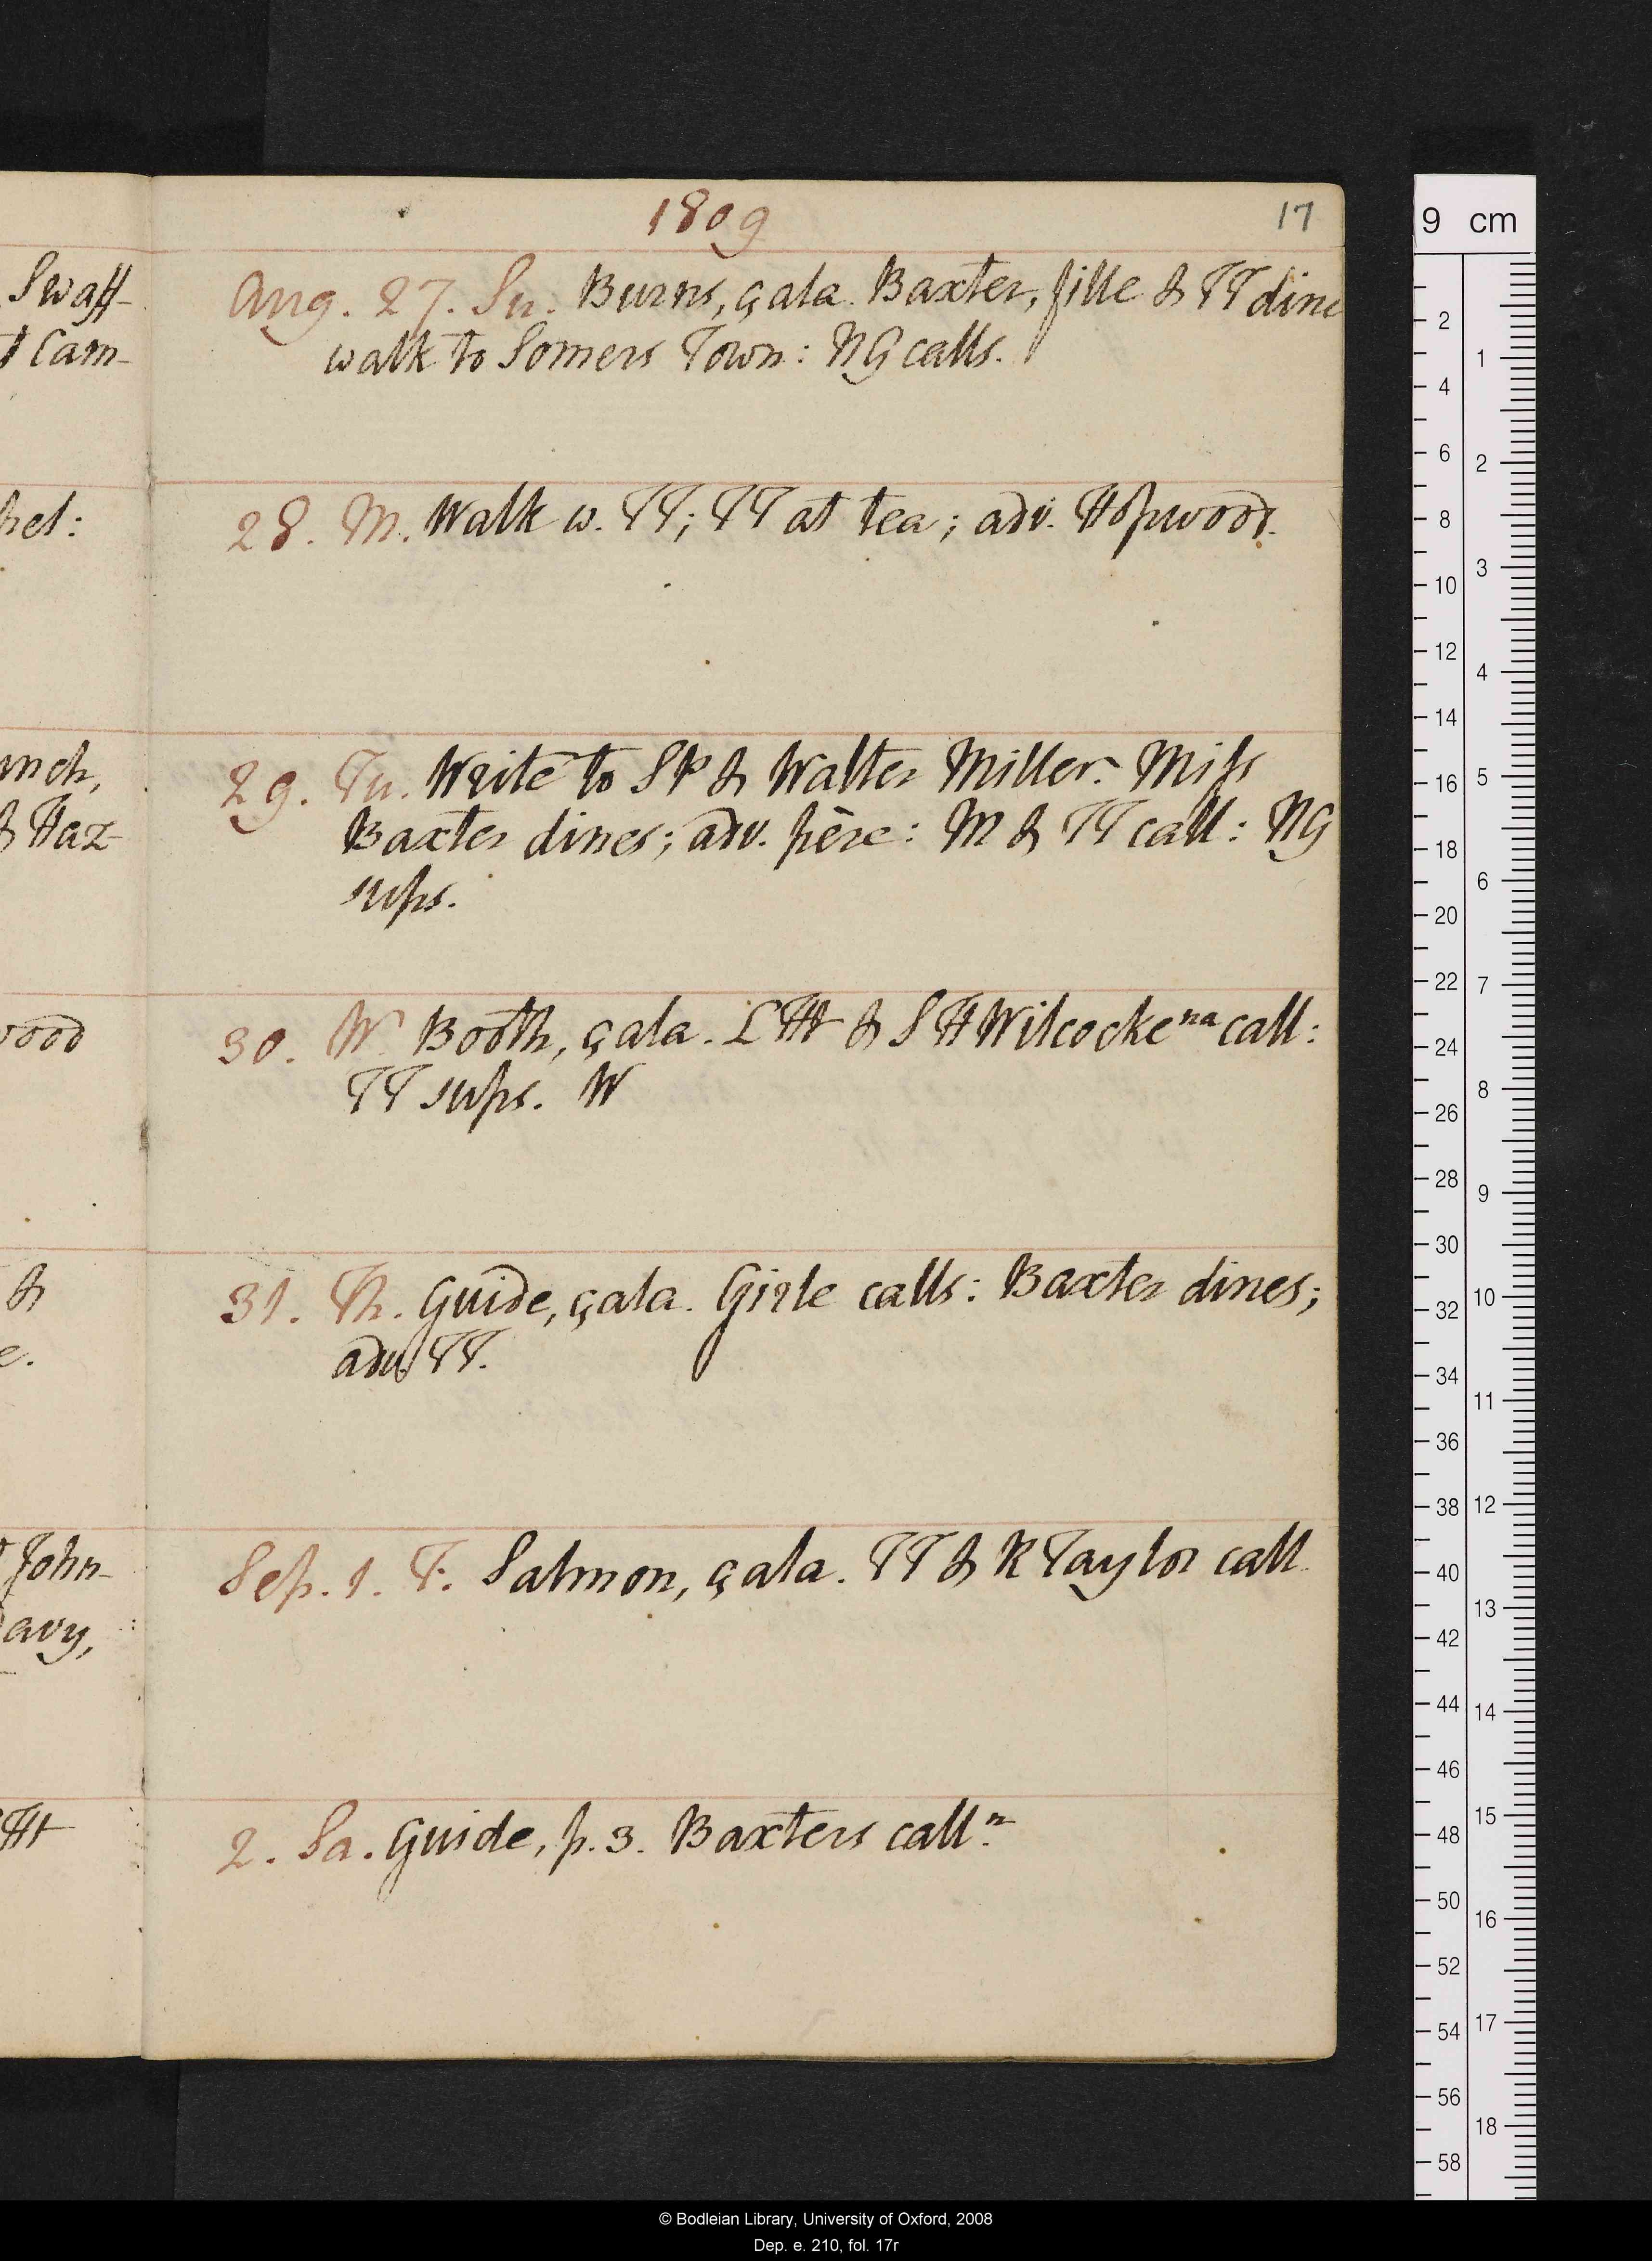 1809
17
Swaff-
Cam-
Aug. 27. Su. Burns, çala. Baxter, fille & TT dine
walk to Somers Town: NG calls.
28. M. Walk w. TT; TT at tea; adv. Hopwood.
& Haz-
29. Tu. Write to SP & Walter Miller. Miss
Baxter dines; adv. père: M & TT call: NG
sups.
30. W. Booth, çala. LH & SHWilcocke na call:
TT sups. W
&
31. Th. Guide, çala. Girle calls: Baxter dines;
adv. TT.
John-
Sep. 1. F. Salmon, çala. TT & R Taylor call.
2. Sa. Guide, p. 3. Baxters call n.
9 cm
2
4
6
8
10
12
14
16
18
20
22
24
26
28
30
32
34
36
38
40
42
44
46
48
50
52
54
56
58
1
2
3
4
5
6
7
8
9
10
11
12
13
14
15
16
17
18
© Bodleian Library, University of Oxford, 2008
Dep. e. 210, fol. 17r